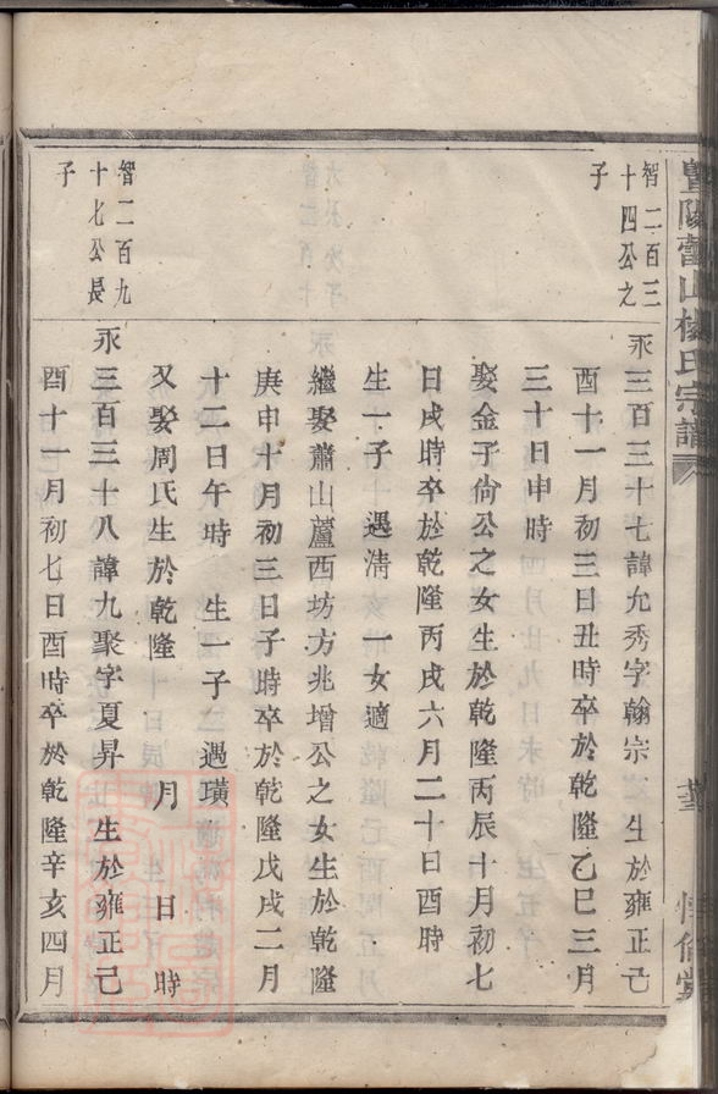 暨陽 山楊氏宗譜
智二百三
十四公之
子
永三百三十七諱允秀字翰宗 生於雍正己
酉十一月初三日丑時卒於乾隆乙巳三月
三十日申時
娶金子尙公之女生於乾隆丙辰十月初七
日戌時卒於乾隆丙戌六月二十日酉時
生一子 遇淸 一女適
繼娶蕭山蘆西坊方兆增公之女生於乾隆
庚申十月初三日子時卒於乾隆戊戌二月
十二日午時 生一子 遇璜
又娶周氏生於乾隆 月 日 時
智二百九
十七公長
子
永三百三十八諱九聚字夏昇 生於雍正己
酉十一月初七日酉時卒於乾隆辛亥四月